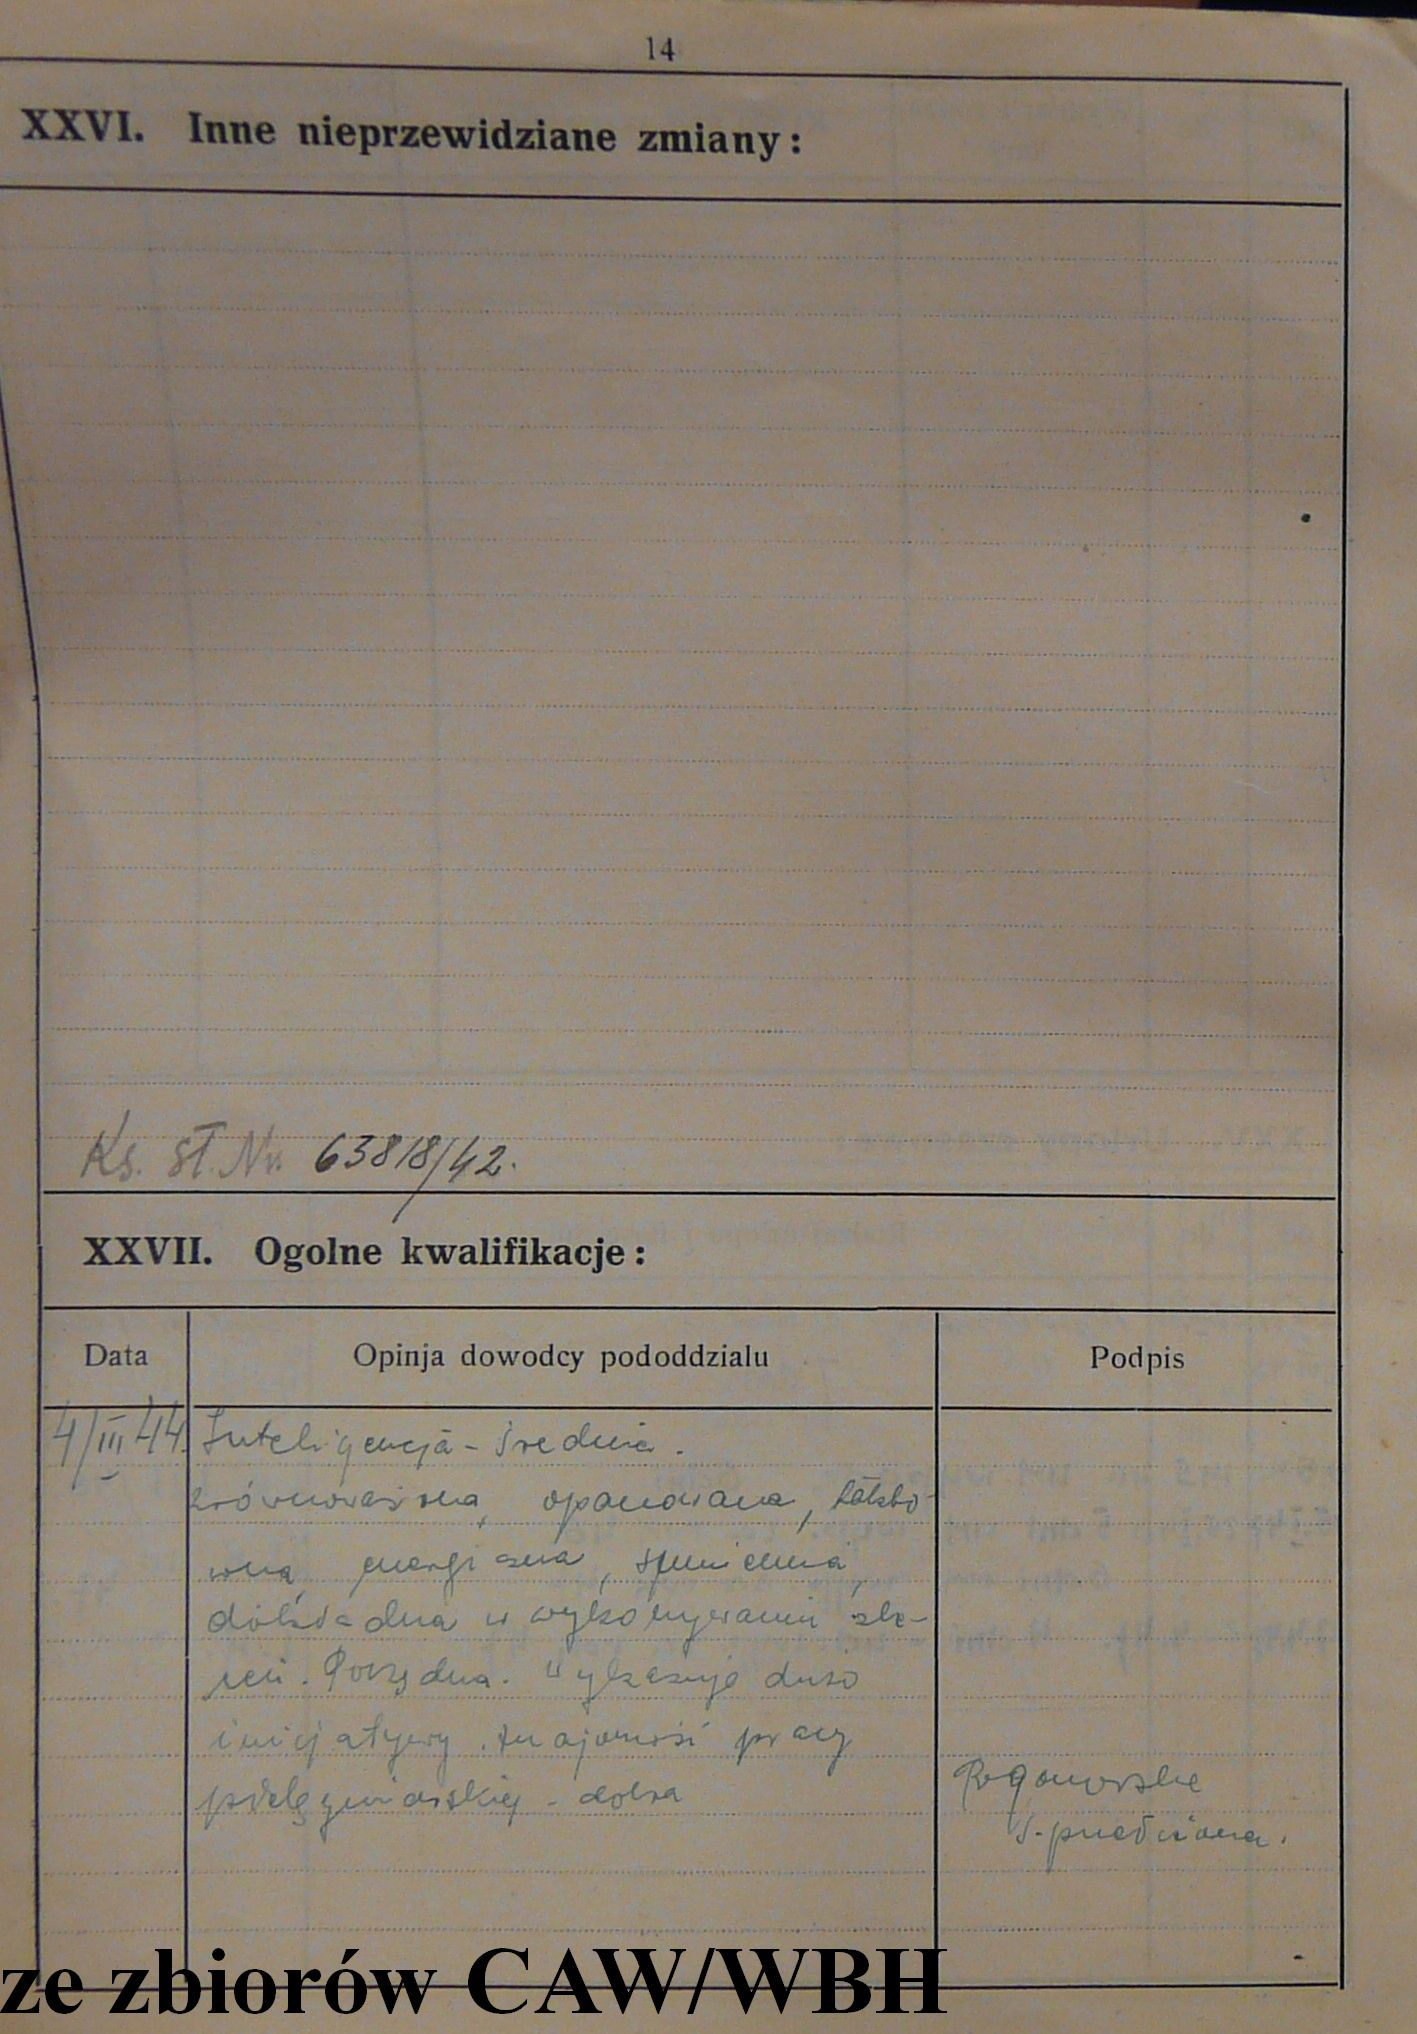 14
XXVI. Inne nieprzewidziane zmiany:
Ks. st. Nr. 63818/42.
XXVII. Ogolne kwalifikacje:
Data Opinja dowodcy pododdzialu Podpis
4/III 44. Inteligencja - średnia.
zrównoważona, opanowana, takto-
wna, energiczna, sumienna,
dokładna w wykonywaniu zle-
ceń. Porządna. Wykazuje dużo
inicjatywy. Znajomość pracy
pielęgniarskiej - dobra
S. przełożona.
ze zbiorów CAW/WBH